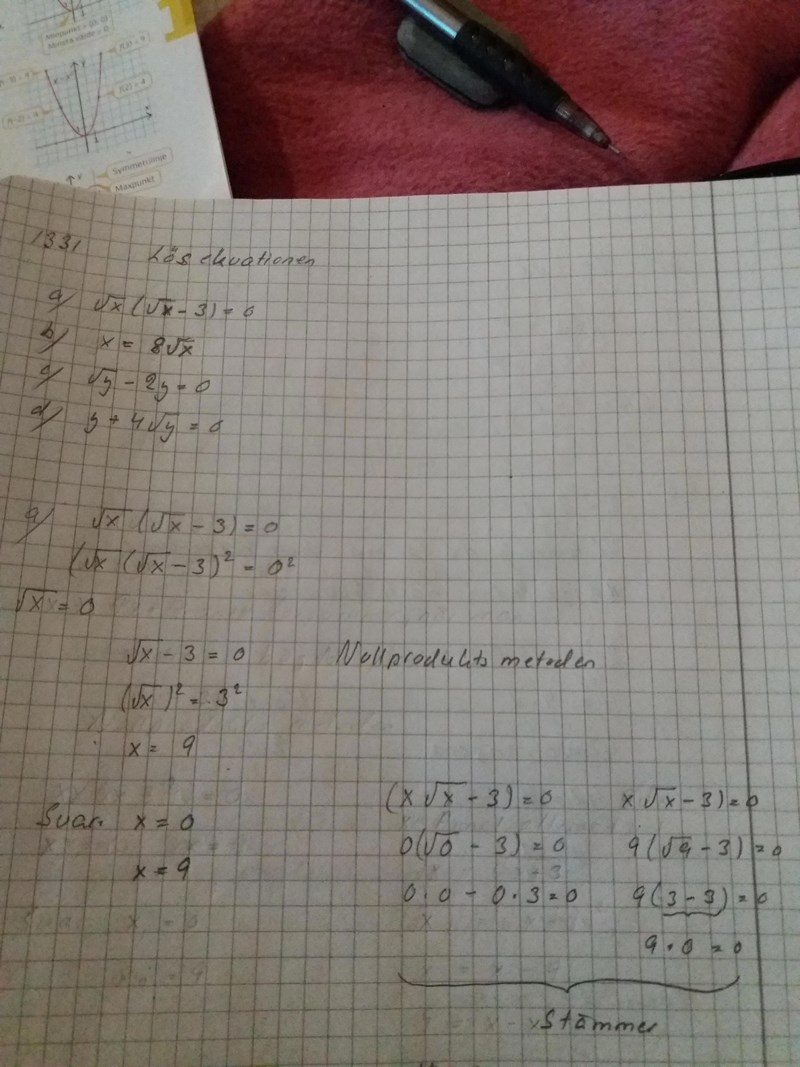 Symmetrilinje
Maxpunkt
1331 Lös ekvationen
a) √x (√x - 3) = 0
b) x = 8√x
c) √y - 2y = 0
d) y + 4√y = 0
a) √x (√x - 3) = 0
(√x (√x - 3)² = 0²
√x = 0
√x - 3 = 0 Nollprodukts metoden
(√x)² = 3²
x = 9
Svar. x = 0
x = 9
(x √x - 3) = 0
0(√0 - 3) = 0
0·0 - 0·3 = 0
x √x - 3) = 0
9(√9 - 3) = 0
9(3 - 3) = 0
9·0 = 0
Stämmer